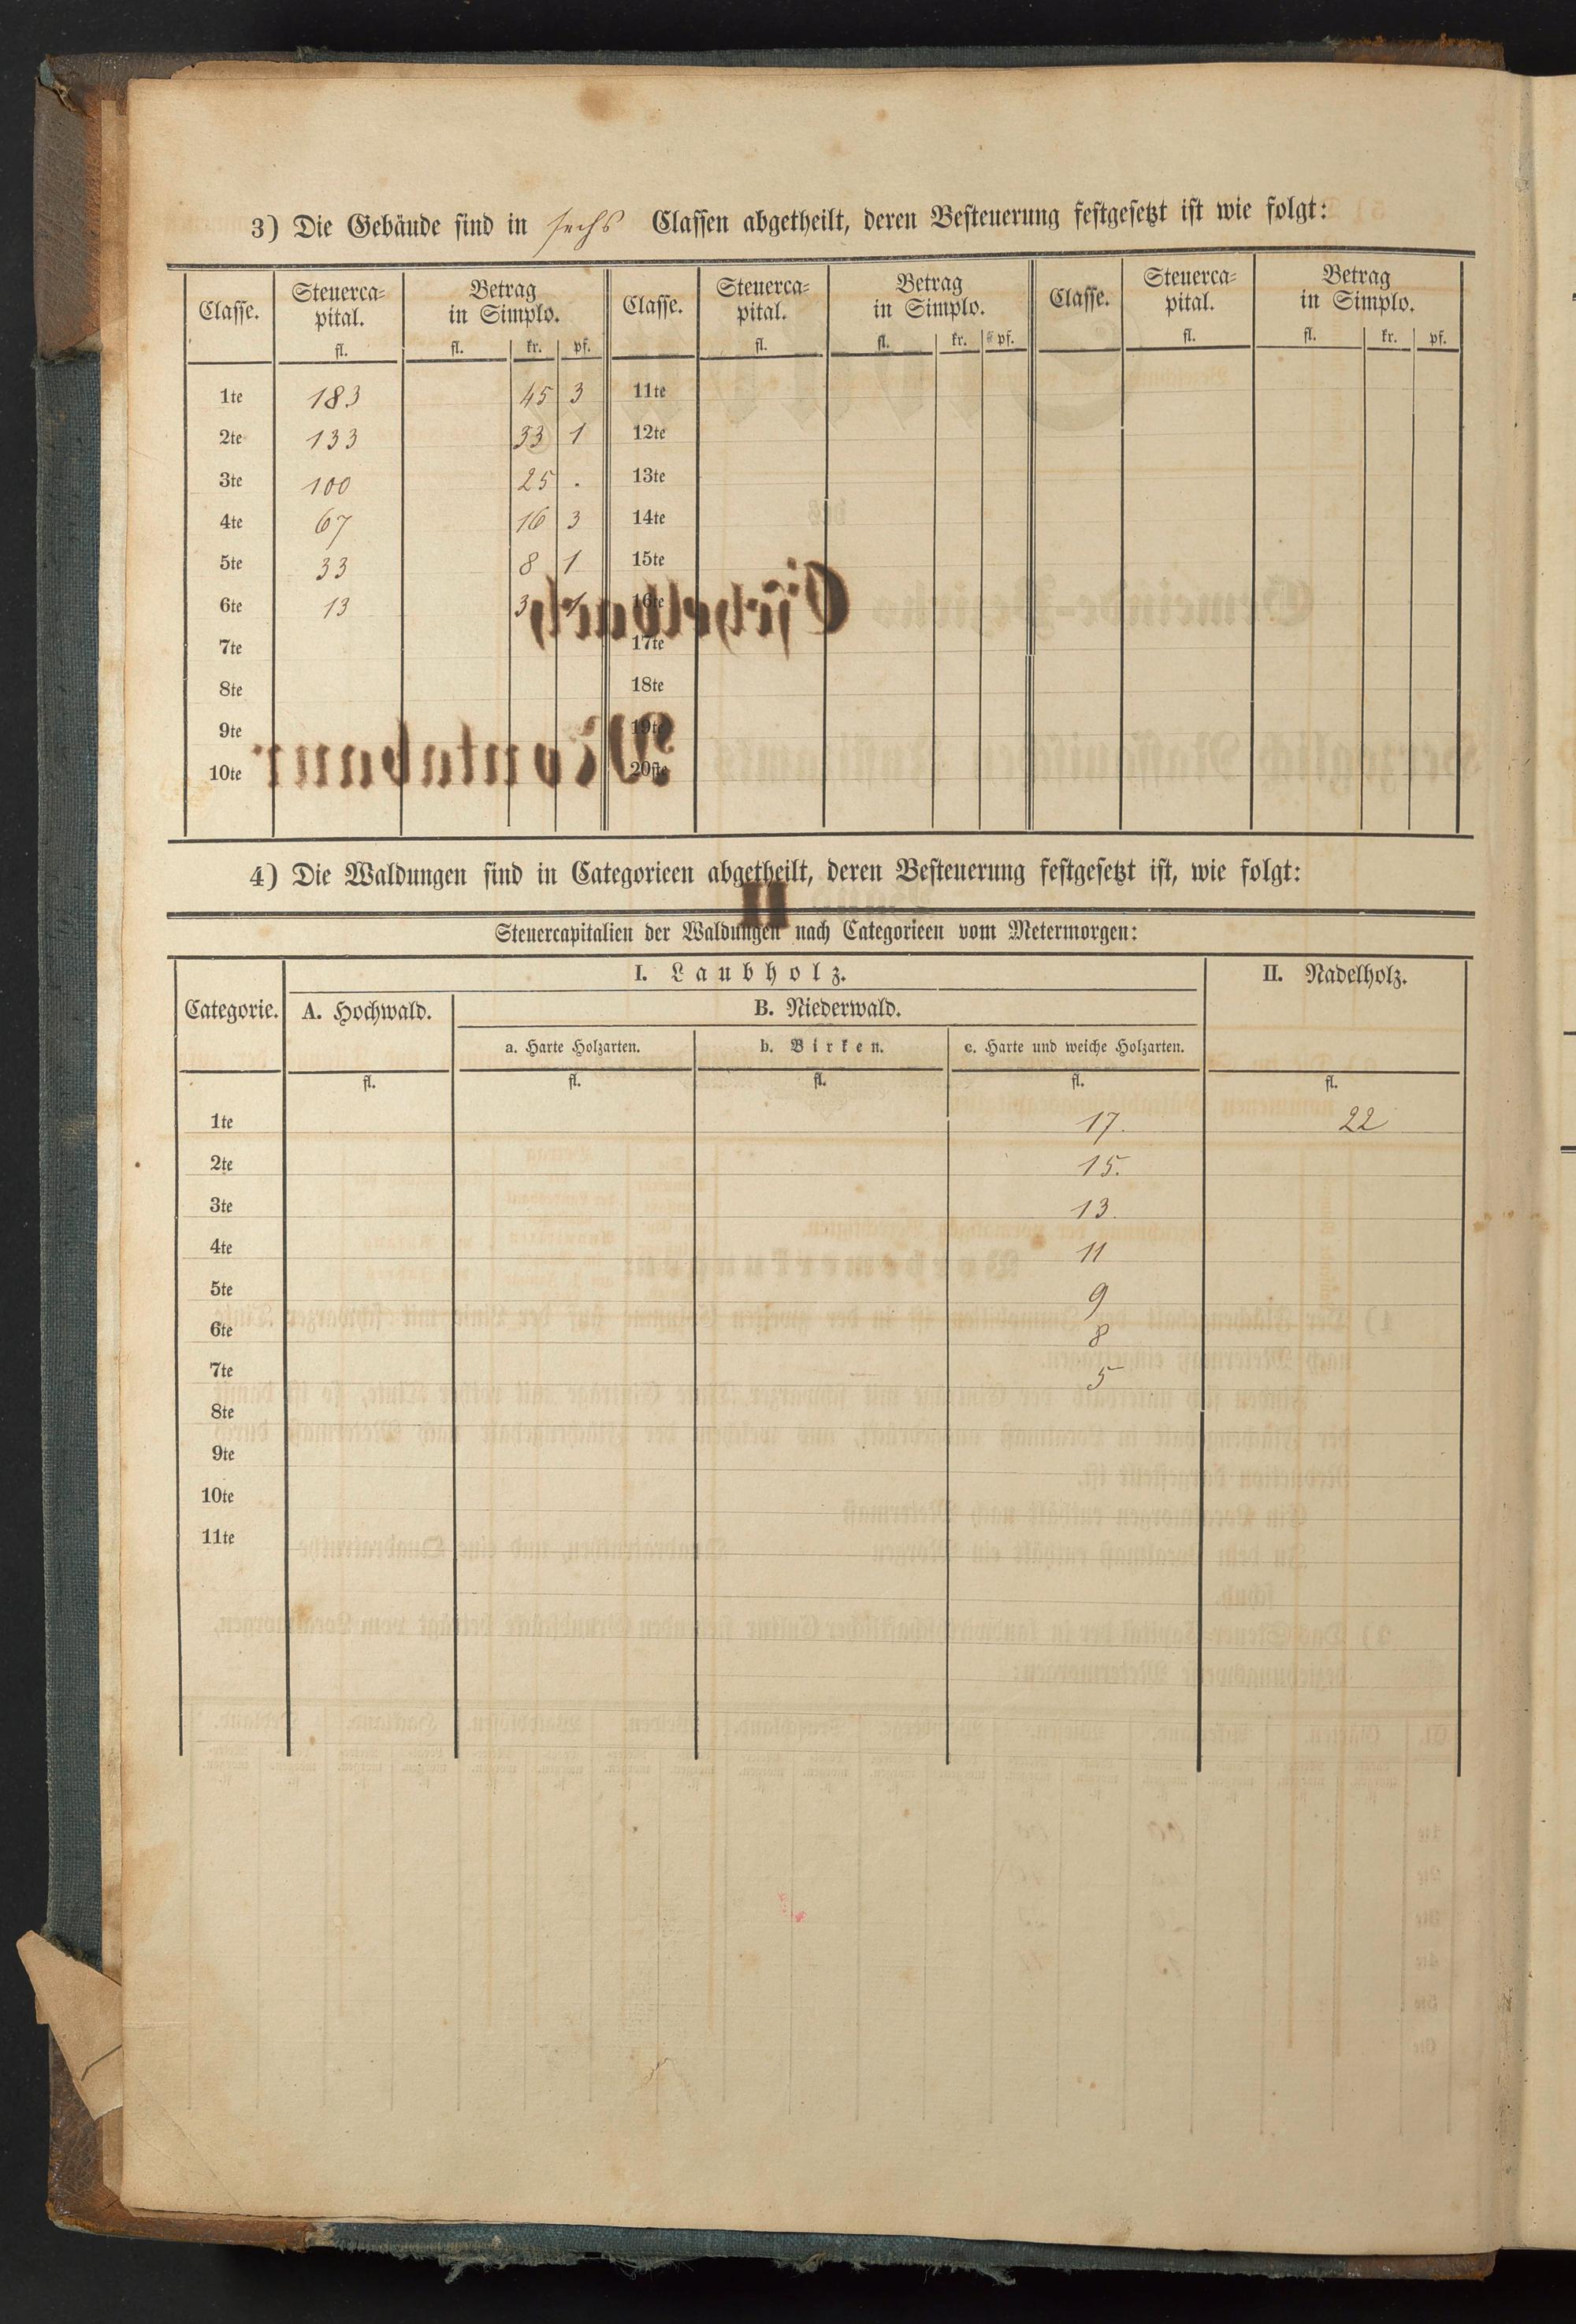 3) Die Gebäude sind in sechs Classen abgetheilt, deren Besteuerung festgesetzt ist wie folgt:
Classe. Steuerca- pital. Betrag in Simplo. Classe. Steuerca- pital. Betrag in Simplo. Classe. Steuerca- pital. Betrag in Simplo.
fl. fl. kr. pf. fl. fl. kr. pf. fl. fl. kr. pf.
1te 183 45 3 11te
2te 133 33 1 12te
3te 100 25 . 13te
4te 67 16 3 14te
5te 33 8 1 15te
6te 13 3 1 16te
7te 17te
8te 18te
9te 19te
10te 20ste
4) Die Waldungen sind in Categorieen abgetheilt, deren Besteuerung festgesetzt ist, wie folgt:
Steuercapitalien der Waldungen nach Categorieen vom Metermorgen:
Categorie. I. Laubholz. II. Nadelholz.
A. Hochwald. B. Niederwald.
a. Harte Holzarten. b. Birken. c. Harte und weiche Holzarten.
fl. fl. fl. fl. fl.
1te 17. 22
2te 15.
3te 13.
4te 11
5te 9
6te 8
7te 5
8te
9te
10te
11te